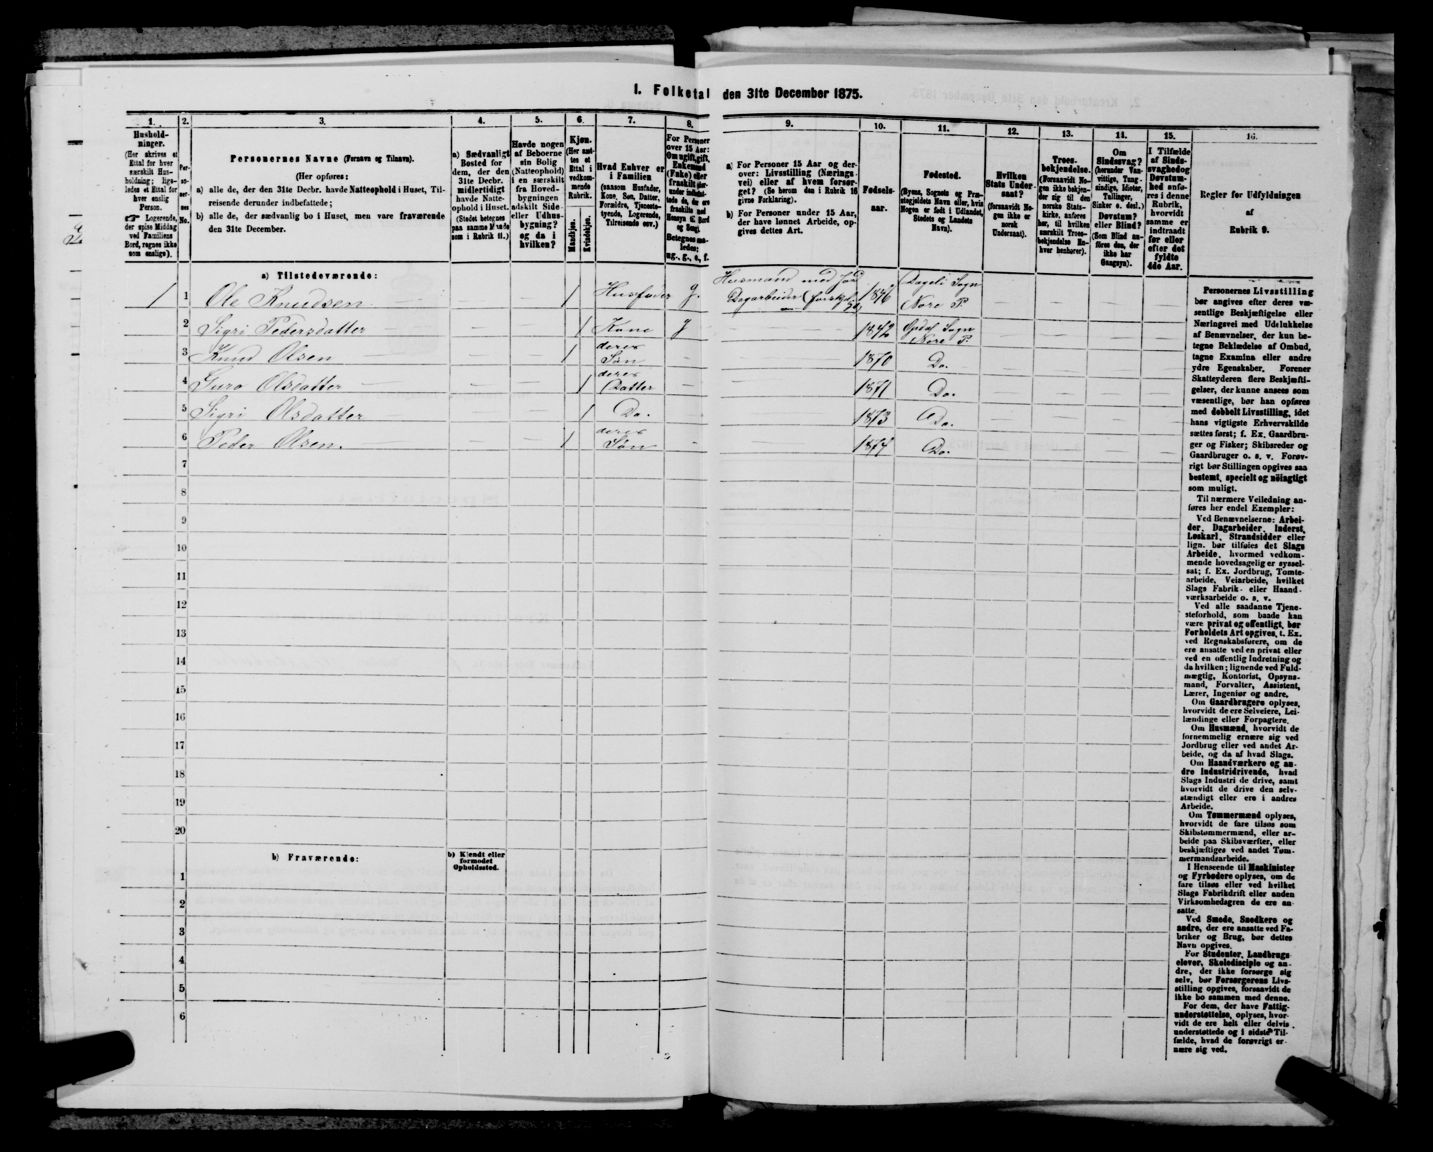 1. Folketal den 31te December 1875.
1. 2. 3. 4. 5. 6. 7. 8. 9. 10. 11. 12. 13. 14. 15. 16.
Hushold-
ninger.
(Her skrives et
Ettal for hver
særskilt Hus-
holdning; lige-
ledes et Ettal for
hver enslig
Person.
Logerende,
der spise Middag
ved Familiens
Bord, regnes ikke
som enslige).
Per-
so-
ner-
nes
No.
Personernes Navne (Fornavn og Tilnavn).
(Her opføres:
a) alle de, der den 31te Decbr. havde Natteophold i Huset, Til-
reisende derunder indbefattede;
b) alle de, der sædvanlig bo i Huset, men vare fraværende
den 31te December.
a) Sædvanligt
Bosted for
dem, der den
31te Decbr.
midlertidigt
havde Natte-
ophold i Huset.
(Stedet betegnes
paa samme Maade
som i Rubrik 11.)
Havde nogen
af Beboerne
sin Bolig
(Natteophold)
i en særskilt
fra Hoved-
bygningen
adskilt Side-
eller Udhus-
bygning?
og da i
hvilken?
Kjøn.
(Her sæt-
tes et
Ettal i
vedkom-
mende
Rubrik.
Mandkjøn.
Kvindekjøn.
Hvad Enhver er
i Familien
(saasom Husfader,
Kone, Søn, Datter,
Forældre, Tjeneste-
tyende, Logerende,
Tilreisende osv.)
For Personer
over 15 Aar:
Om ugift, gift,
Enkemand
(Enke) eller
fraskilt
a) For Personer 15 Aar og der-
over: Livsstilling (Nærings-
vei) eller af hvem forsør-
get? (Se herom den i Rubrik 16
givne Forklaring).
b) For Personer under 15 Aar,
der have lønnet Arbeide, op-
gives dettes Art.
Fødsels-
aar.
Fødested.
(Byens, Sognets og Præ-
stegjeldets Navn eller, hvis
Nogen er født i Udlandet,
Stedets og Landets
Navn).
Hvilken
Stats Under-
saat?
(forsaavidt No-
gen ikke er
norsk
Undersaat).
Troes-
bekjendelse.
(Forsaavidt No-
gen ikke bekjen-
der sig til den
norske Stats-
kirke, anføres
her, til hvilken
særskilt Troes-
bekjendelse En-
hver henhører).
Om
Sindssvag?
(herunder Van-
vittige, Tung-
sindige, Idioter,
Tullinger,
Sinker o. desl.)
Døvstum?
eller Blind?
(Som Blind an-
føres den, der
ikke har
Gangsyn).
I Tilfælde
af Sinds-
svaghed og
Døvstum-
hed anfø-
res i denne
Rubrik,
hvorvidt
samme er
indtraadt
før eller
efter det
fyldte
4de Aar.
Regler for Udfyldningen
af
Rubrik 9.
a) Tilstedeværende:
1 1 Ole Knudsen 1 Husfader g. Husmand med Jord Dagarbeider 1846 Dagali Sogn Nore P.
2 Sigri Pedersdatter 1 Kone g 1842 Opdal Sogn Nore P.
3 Knud Olsen 1 deres Søn 1870 Do.
4 Guro Olsdatter 1 deres Datter 1871 Do.
5 Sigri Olsdatter 1 Do. 1873 Do.
6 Peder Olsen. 1 deres Søn 1874 Do.
7
8
9
10
11
12
13
14
15
16
17
18
19
20
b) Fraværende:
b) Kjendt eller
formodet
Opholdssted.
1
2
3
4
5
6
Personernes Livsstilling
bør angives efter deres væ-
sentlige Beskjæftigelse eller
Næringsvei med Udelukkelse
af Benævnelser, der kun be-
tegne Beklædelse af Ombud,
tagne Examina eller andre
ydre Egenskaber. Forener
Skatteyderen flere Beskjæfti-
gelser, der kunne ansees som
væsentlige, bør han opføres
med dobbelt Livsstilling, idet
hans vigtigste Erhvervskilde
sættes først; f. Ex. Gaardbru-
ger og Fisker; Skibsreder og
Gaardbruger o. s. v. Forøv-
rigt bør Stillingen opgives saa
bestemt, specielt og nöiagtigt
som muligt.
Til nærmere Veiledning an-
føres her endel Exempler:
Ved Benævnelserne: Arbei-
der, Dagarbeider, Inderst,
Løskarl, Strandsidder eller
lign. bør tilføies det Slags
Arbeide, hvormed vedkom-
mende hovedsagelig er syssel-
sat; f. Ex. Jordbrug, Tomte-
arbeide, Veiarbeide, hvilket
Slags Fabrik- eller Haand-
værksarbeide o. s. v.
Ved alle saadanne Tjene-
steforhold, som baade kan
være privat og offentligt, bør
Forholdets Art opgives, t. Ex.
ved Regnskabsførere, om de
ere ansatte ved en privat eller
ved en offentlig Indretning og
da hvilken; lignende ved Fuld-
mægtig, Kontorist, Opsyns-
mand, Forvalter, Assistent,
Lærer, Ingeniør og andre.
Om Gaardbrugere oplyses,
hvorvidt de ere Selveiere, Lei-
lændinge eller Forpagtere.
Om Husmænd, hvorvidt de
fornemmelig ernære sig ved
Jordbrug eller ved andet Ar-
beide, og da af hvad Slags.
Om Haandværkere og an-
dre Industridrivende, hvad
Slags Industri de drive, samt
hvorvidt de drive den selv-
stændigt eller ere i andres
Arbeide.
Om Tømmermænd oplyses,
hvorvidt de fare tilsøs som
Skibstømmermænd, eller ar-
beide paa Skibsværfter, eller
beskjæftiges ved andet Tøm-
mermandsarbeide.
I Henseende til Maskinister
og Fyrbødere oplyses, om de
fare tilsøs eller ved hvilket
Slags Fabrikdrift eller anden
Virksomhedsgren de ere an-
satte.
Ved Smede, Snedkere og
andre, der ere ansatte ved Fa-
briker og Brug, bør dettes
Navn opgives.
For Studenter, Landbrugs-
elever, Skoledisciple og an-
dre, der ikke forsørge sig
selv, bør Forsørgerens Livs-
stilling opgives, forsaavidt de
ikke bo sammen med denne.
For dem, der have Fattig-
understøttelse, oplyses, hvor-
vidt de ere helt eller delvis
understøttede og i sidste Til-
fælde, hvad de forøvrigt er-
nære sig ved.